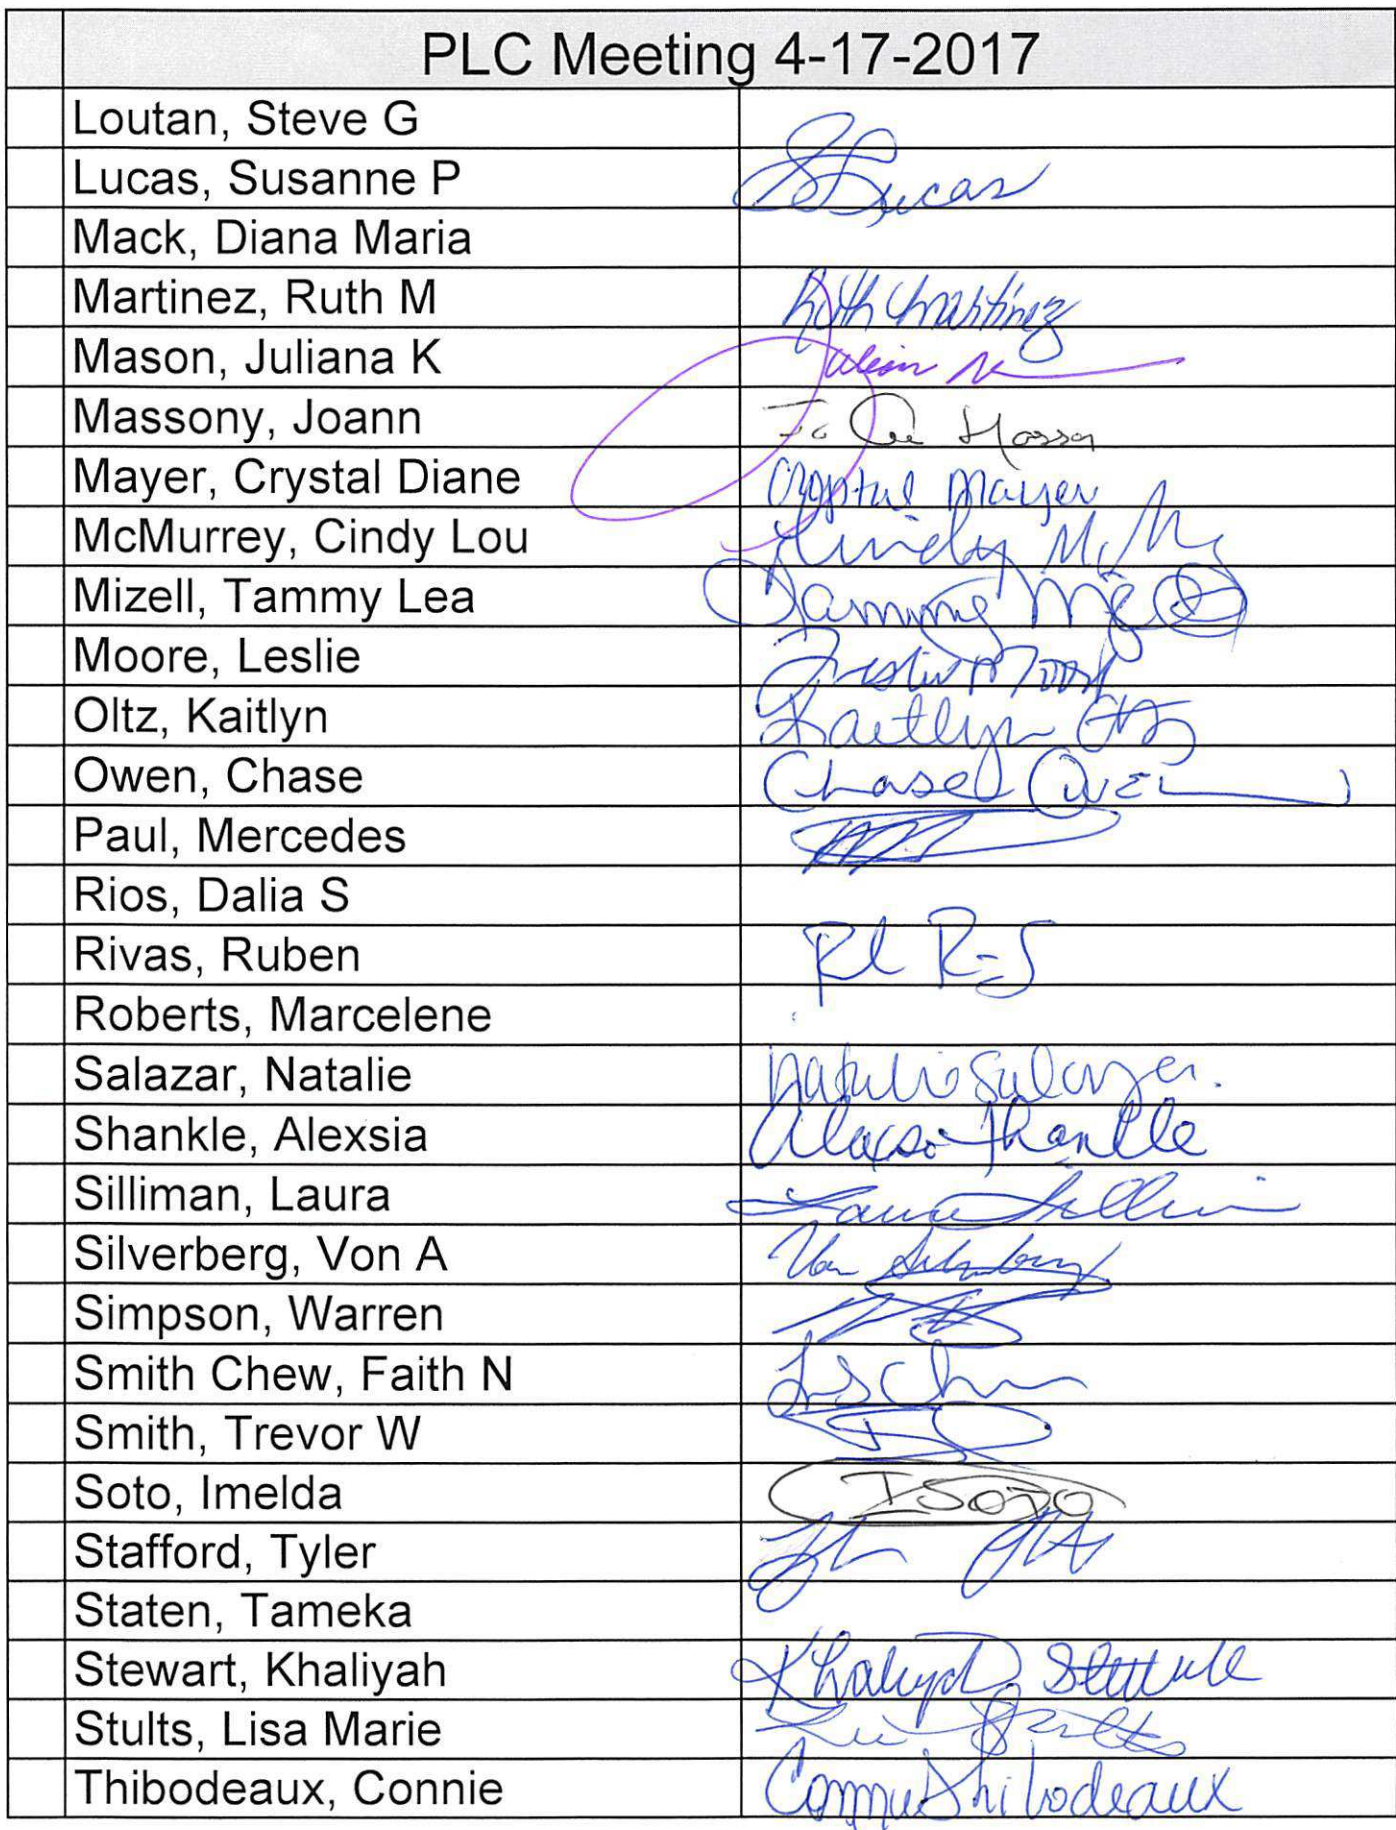 PLC Meeting 4-17-2017
Loutan, Steve G
Lucas, Susanne P SLucas
Mack, Diana Maria
Martinez, Ruth M Ruth Martinez
Mason, Juliana K
Massony, Joann
Mayer, Crystal Diane Crystal Mayer
McMurrey, Cindy Lou Cindy
Mizell, Tammy Lea Tammy
Moore, Leslie Leslie Moore
Oltz, Kaitlyn Kaitlyn
Owen, Chase Chase Owen
Paul, Mercedes
Rios, Dalia S
Rivas, Ruben
Roberts, Marcelene
Salazar, Natalie Natalie Salazar.
Shankle, Alexsia Shankle
Silliman, Laura Laura
Silverberg, Von A Von
Simpson, Warren
Smith Chew, Faith N
Smith, Trevor W
Soto, Imelda ISOTO
Stafford, Tyler
Staten, Tameka
Stewart, Khaliyah Khaliyah
Stults, Lisa Marie Stults
Thibodeaux, Connie Connie Thibodeaux